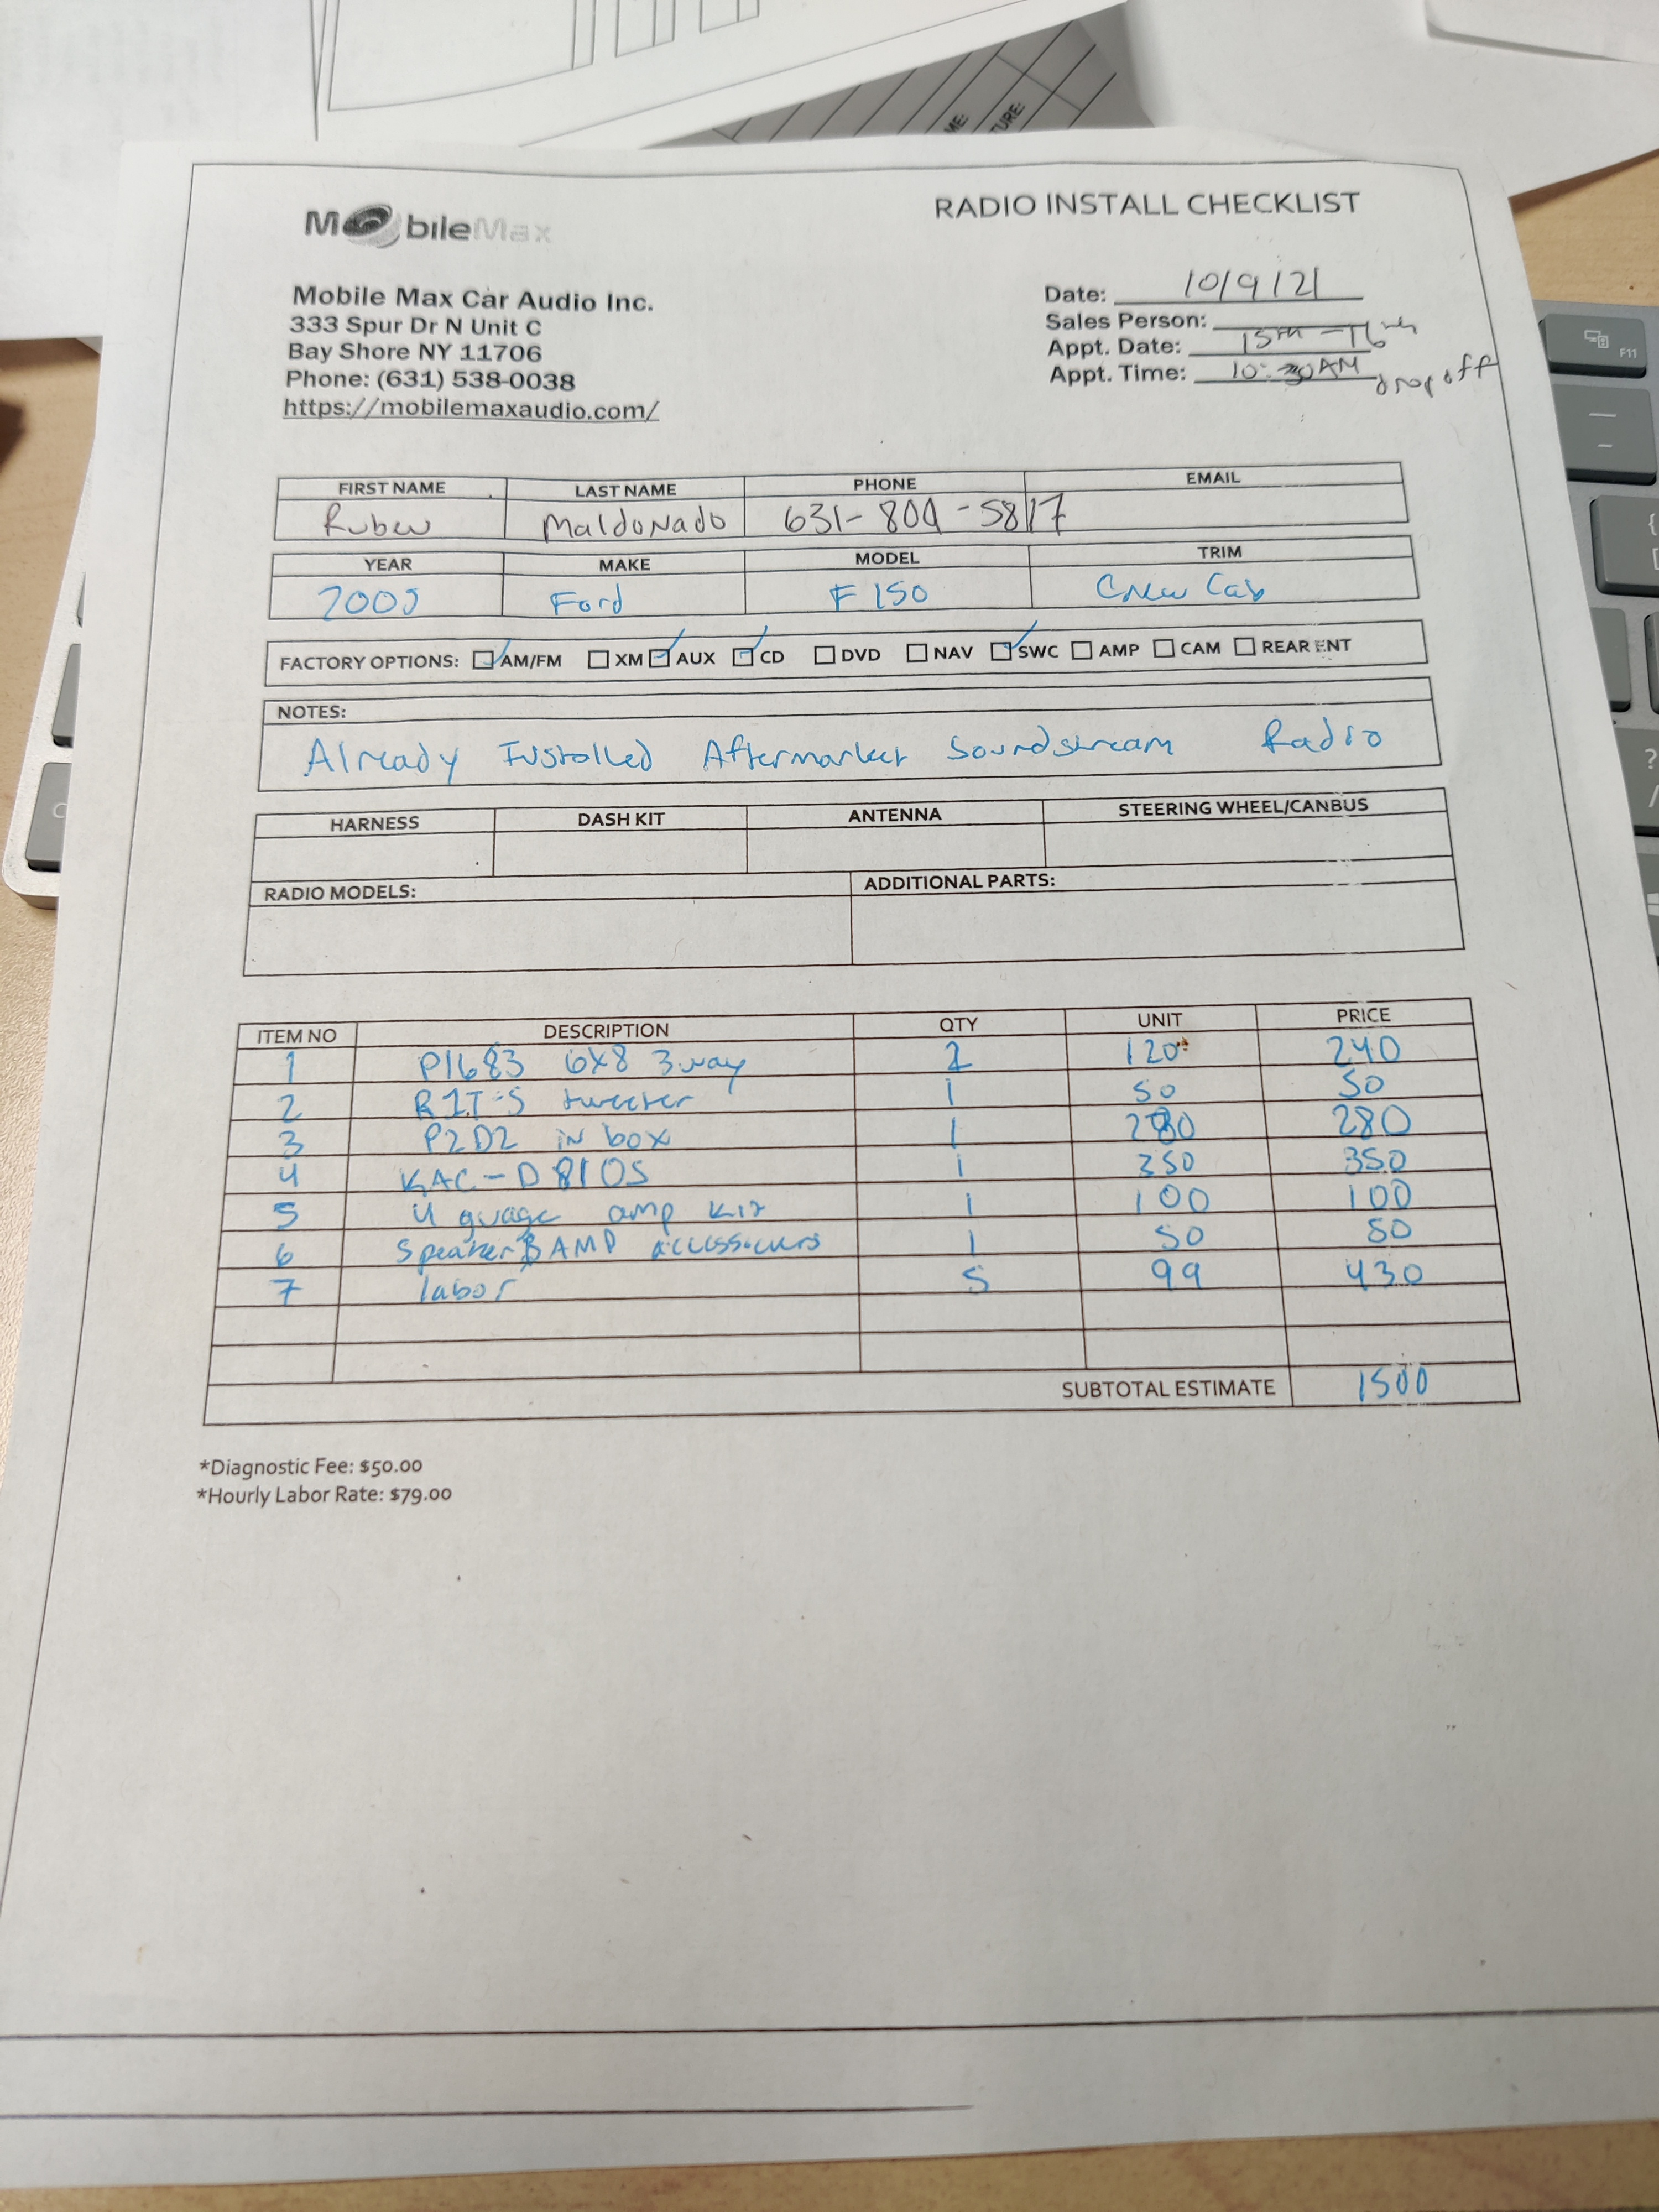 ME:
TURE:
MobileMax
RADIO INSTALL CHECKLIST
Mobile Max Car Audio Inc.
333 Spur Dr N Unit C
Bay Shore NY 11706
Phone: (631) 538-0038
https://mobilemaxaudio.com/
Date: 10/9/21
Sales Person:
Appt. Date: 15th - 16th
Appt. Time: 10:30AM drop off
FIRST NAME LAST NAME PHONE EMAIL
Ruben Maldonado 631-804-5817
YEAR MAKE MODEL TRIM
2005 Ford F150 Crew Cab
FACTORY OPTIONS: AM/FM XM AUX CD DVD NAV SWC AMP CAM REAR ENT
NOTES:
Already Installed Aftermarket Soundstream Radio
HARNESS DASH KIT ANTENNA STEERING WHEEL/CANBUS
RADIO MODELS: ADDITIONAL PARTS:
ITEM NO DESCRIPTION QTY UNIT PRICE
1 P1683 6x8 3way 2 120 240
2 R1T-S tweeter 1 50 50
3 P2D2 in box 1 280 280
4 KAC-D8105 1 350 350
5 4 guage amp kit 1 100 100
6 Speaker & AMP 1 50 50
7 labor 5 99 430
SUBTOTAL ESTIMATE 1500
*Diagnostic Fee: $50.00
*Hourly Labor Rate: $79.00
F11